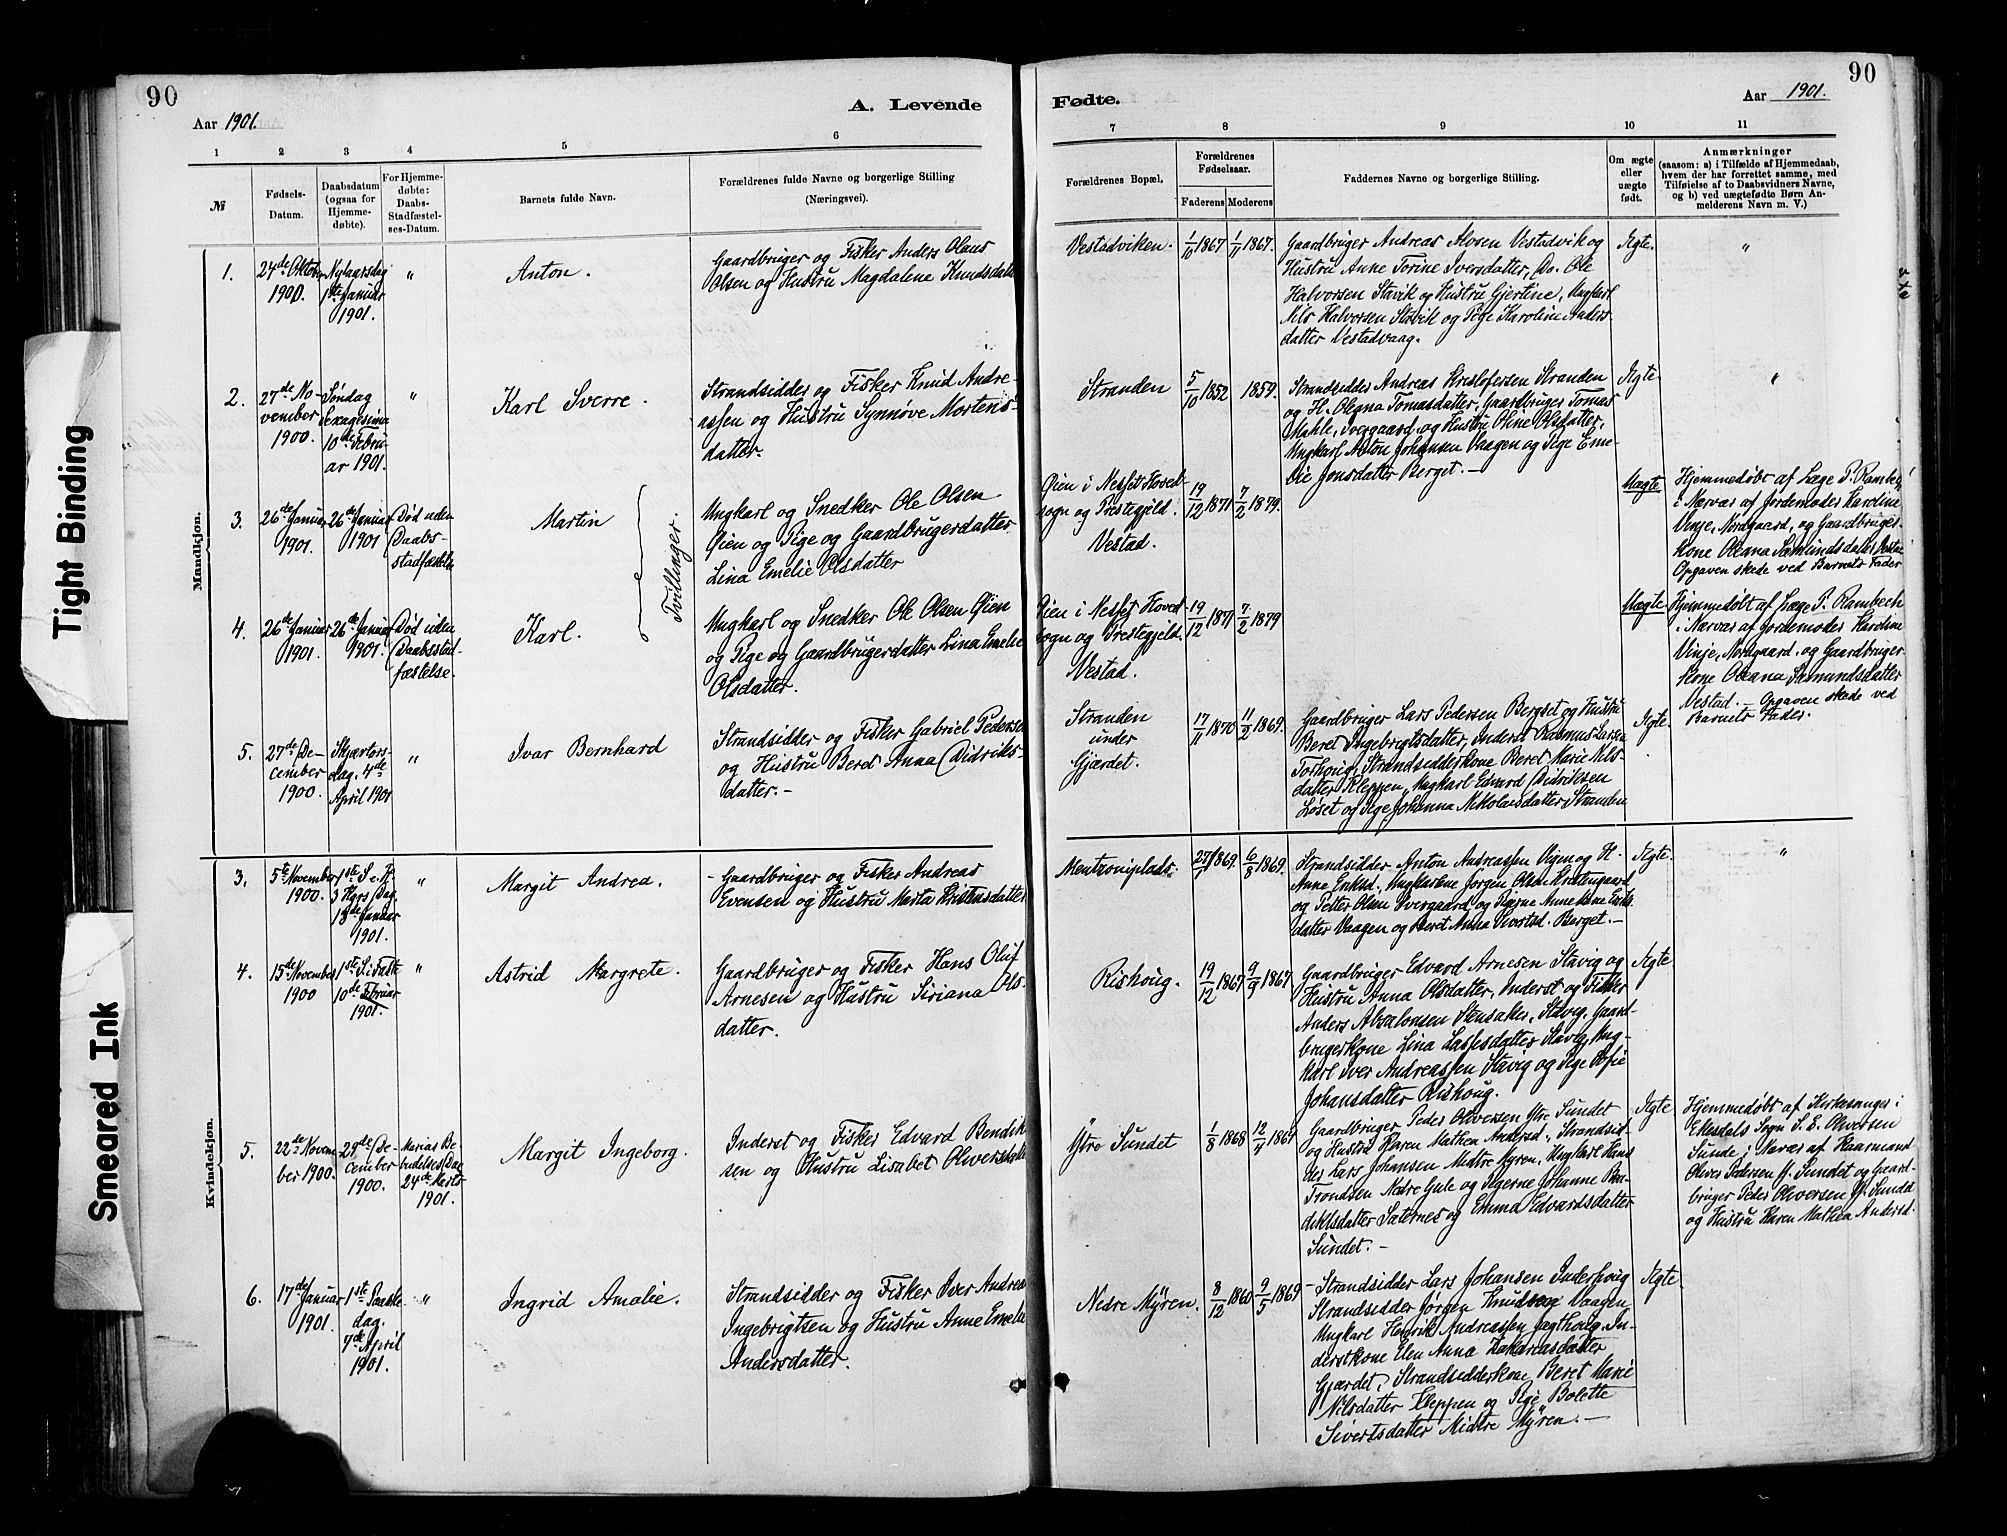 90
90
A. Levende
Fødte.
Aar 1901.
Aar 1901.
1
2
3
4
5
6
7
8
9
10
11
№
Fødsels-
Datum.
Daabsdatum
(ogsaa for
Hjemme-
døbte).
For Hjemme-
døbte:
Daabs-
Stadfæstel-
ses-Datum.
Barnets fulde Navn.
Forældrenes fulde Navne og borgerlige Stilling
(Næringsvei).
Forældrenes Bopæl.
Forældrenes
Fødselsaar.
Faderens
Moderens
Faddernes Navne og borgerlige Stilling.
Om ægte
eller
uægte
født.
Anmærkninger
(saasom: a) i Tilfælde af Hjemmedaab,
hvem der har forrettet samme, med
Tilføielse af to Daabsvidners Navne,
og b) ved uægtefødte Børn An-
melderens Navn m. V.)
Mandkjøn.
1.
24de Oktober
1900.
Nytaarsdag
1ste Januar
1901.
"
Anton.
Gaardbruger og Fisker Anders Olaus
Olsen og Hustru Magdalene Knudsdatter
Vestadviken.
1/10 1867
1/11 1867.
Gaardbruger Andreas Vestadvik og
Hustru Anne Torine Iversdatter, Do. Ole
Halvorsen Stavik og Hustru Gjertine, Ungkarl
Nils Halvorsen Stavik og Pige Karoline Anders-
datter Vestadvaag.
Ægte.
"
2.
27de No-
vember
1900.
Søndag
Sexagesima
10de Febru-
ar 1901.
"
Karl Sverre.
Strandsidder og Fisker Knud Andre-
assen og Hustru Synnøve Mortens-
datter.
Stranden
5/10 1852
1859.
Strandsidder Andreas Kristofersen Stranden
og H. Oleana Tomasdatter, Gaardbruger Tomas
Mahle, Ivergaard og Hustru Oline Olsdatter,
Ungkarl Anton Johansen Vaagen og Pige Eme-
lie Jonsdatter Berget. —
Ægte.
"
3.
26de Januar
1901.
26de Januar
1901
Død uden
Daabs-
stadfæstelse
Martin
Tvillinger.
Ungkarl og Snedker Ole Olsen
Øien og Pige og Gaardbrugerdatter
Lina Emelie Olsdatter
Øien i Nesset Hoved-
sogn og Prestegjeld.
Vestad.
19/12 1871
7/2 1879.
Uægte
Hjemmedøbt af Læge P. Rambech
i Nærvær af Jordemoder Karoline
Vinje, Nordgaard, og Gaardbruger-
kone Oleana Sæmundsdatter Vestad
Opgaven skede ved Barnets Fader
4.
26de Januar
1901.
26de Januar
1901.
Død uden
Daabsstad-
fæstelse.
Karl.
Ungkarl og Snedker Ole Olsen Øien
og Pige og Gaardbrugerdatter Lina Emelie
Olsdatter.
Øien i Nesset Hoved-
sogn og Prestegjeld.
Vestad.
19/12 1871
7/2 1879
Uægte
Hjemmedøbt af Læge P. Rambech
i Nærvær af Jordemoder Karoline
Vinje, Nordgaard, og Gaardbruger-
kone Oleana Sæmundsdatter
Vestad. — Opgaven skede ved
Barnets Fader.
5.
27de De-
cember
1900.
Skjærtors-
dag. 4de
April 1901
"
Ivar Bernhard
Strandsidder og Fisker Gabriel Pedersen
og Hustru Beret Anna Didriks-
datter. —
Stranden
under
Gjærdet.
17/11 1870
11/2 1869.
Gaardbruger Lars Pedersen Bergset og Hustru
Beret Ingebrigtsdatter, Inderst Rasmus Larsen
Torhoug, Strandsidderkone Beret Marie Nils-
datter Kleppen, Ungkarl Edvard Didriksen
Løset og Pige Johanna Nikolaisdatter Stranden
Ægte.
Kvindekjøn.
3.
5te November
1900.
1ste S. e. H.
3 Kgrs Dag.
13de Januar
1901.
"
Margit Andrea.
Gaardbruger og Fisker Andreas
Evensen og Hustru Marta Kristensdatter
Mentzoniplads.
1869.
6/8 1869.
Strandsidder Anton Andreassen Veigen og H.
Anne Eriksd., Ungkarlene Jørgen Olsen
og Petter Olsen Ivergaard og Pigerne Anne
datter Vaagen og Beret Anna Sivertsd. Berget. —
Ægte.
"
4.
15de November
1900
1ste S. i Faste
10de Februar
1901.
"
Astrid Margrete.
Gaardbruger og Fisker Hans Oluf
Arnesen og Hustru Siriana Ols-
datter.
Rishoug.
19/12 1867
9/9 1867
Gaardbruger Edvard Arnesen Stavig og
Hustru Anna Olsdatter, Inderst og Fisker
Anders Absalonsen Stensaker, Stavig, Gaard-
brugerkone Lina Lassesdatter Stavig, Ung-
karl Iver Andreassen Stavig og Pige Sofie
Johansdatter Rishoug.
Ægte.
5.
22de Novem-
ber 1900.
29de De-
cember
1900.
Marias Be-
budelses Dag
24de Marts
1901.
Margit Ingeborg.
Inderst og Fisker Edvard Bendik-
sen og Hustru Lisabet Oliversdatter
Ytre Sundet
1/8 1868
12/4 1867
Gaardbruger Peder Oliversen Ytre Sundet
og Hustru Karen Mathea Andersd., Strandsid-
der Lars Johansen Midtre Myren, Ungkarl Hans
Trondsen Nedre Gule og Pigerne Johanne Ben-
diktsdatter Saternes og Emma Edvardsdatter
Sundet. —
Ægte
Hjemmedøbt af Kirkesanger i
Eikesdals Sogn S. E. Oliversen
Sunde, i Nærvær af Kaarmand
Oliver Pedersen Y. Sundet og Gaard-
bruger Peder Oliversen Y. Sundet
og Hustru Karen Mathea Andersd.
6.
17de Januar
1901.
1ste Paaske-
dag.
7de April
1901.
"
Ingrid Amalie.
Strandsidder og Fisker Iver Andreas
Ingebrigtsen og Hustru Anne Emelie
Andersdatter.
Nedre Myren.
8/12 1860
9/5 1869
Strandsidder Lars Johansen Inderhoug
Strandsidder Jørgen Knudsen Vaagen,
Ungkarl Henrik Andreassen Jagthoug, In-
derstkone Elen Anna Zakariasdatter
Gjærdet, Strandsidderkone Beret Marie
Nilsdatter Kleppen og Pige Bolette
Sivertsdatter Midtre Myren. —
Ægte.
Tight Binding
Smeared Ink